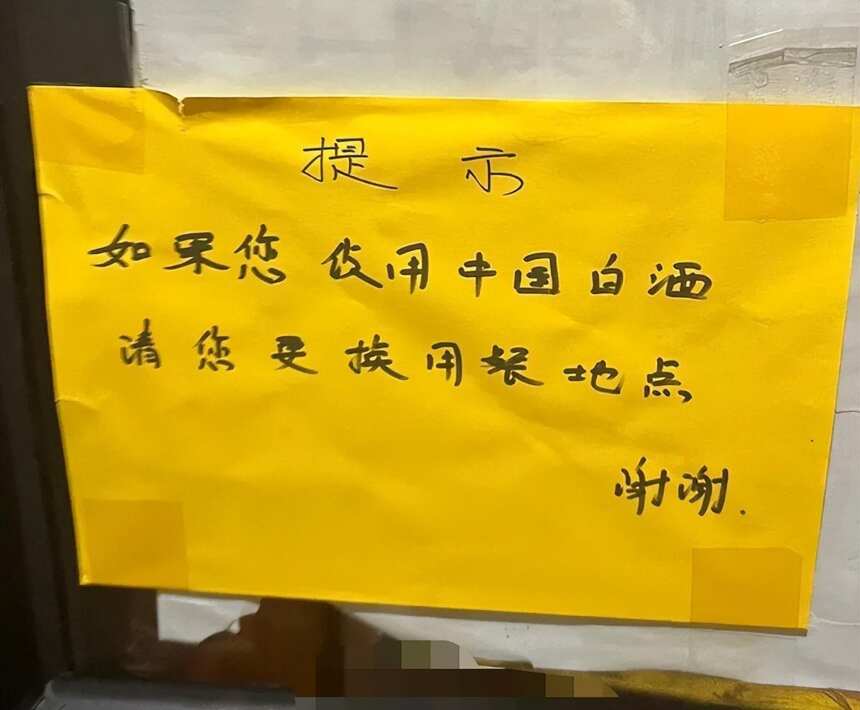 提示
如果您饮用中国白酒
请您更换用餐地点
谢谢.